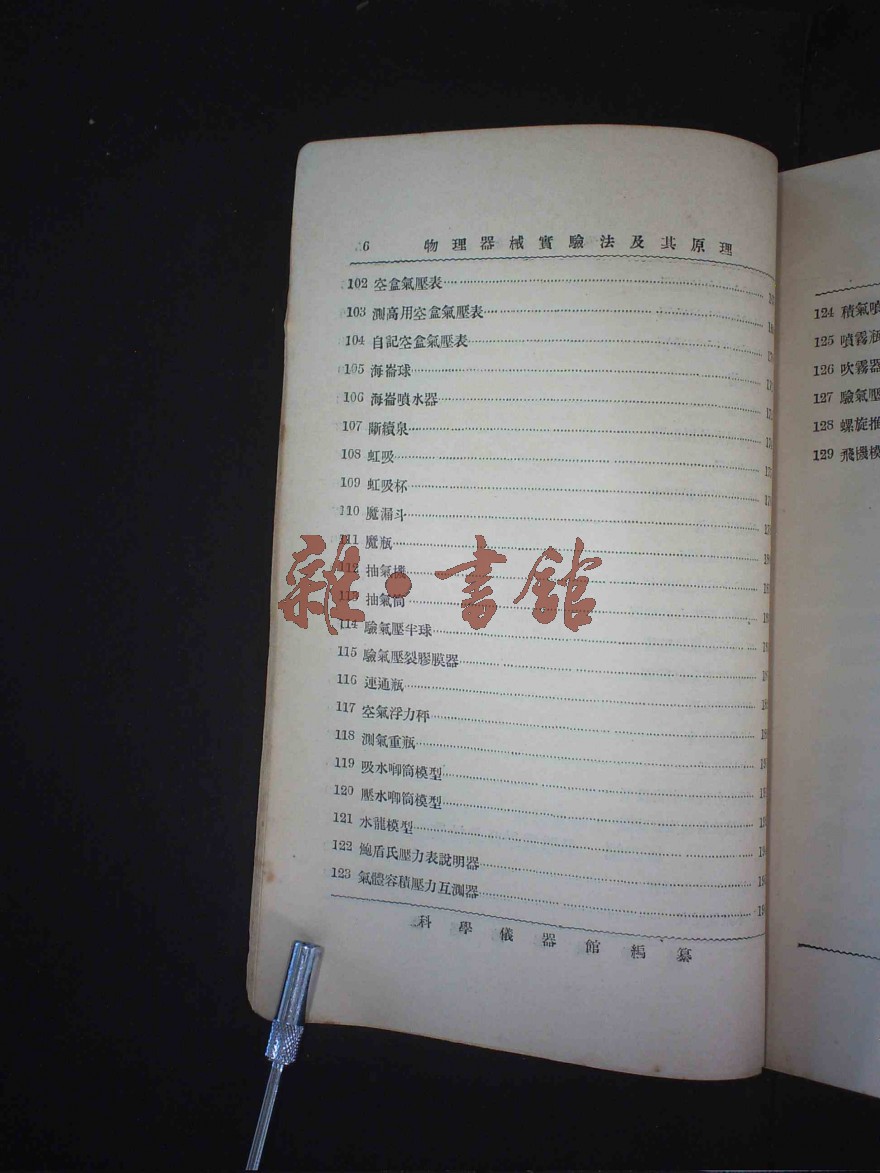 6 物理器械實驗法及其原理
102 空盒氣壓表
103 測高用空盒氣壓表
104 自記空盒氣壓表
105 海崙球
106 海崙噴水器
107 斷續泉
108 虹吸
109 虹吸杯
110 魔漏斗
111 魔瓶
112 抽氣機
113 抽氣筒
114 驗氣壓半球
115 驗氣壓裂膠膜器
116 連通瓶
117 空氣浮力秤
118 測氣重瓶
119 吸水唧筒模型
120 壓水唧筒模型
121 水龍模型
122 鮑盾氏壓力表說明器
123 氣體容積壓力互測器
科學儀器館編纂
雜·書館
124 積氣噴
125 噴霧瓶
126 吹霧器
127 驗氣壓
128 螺旋推
129 飛機模